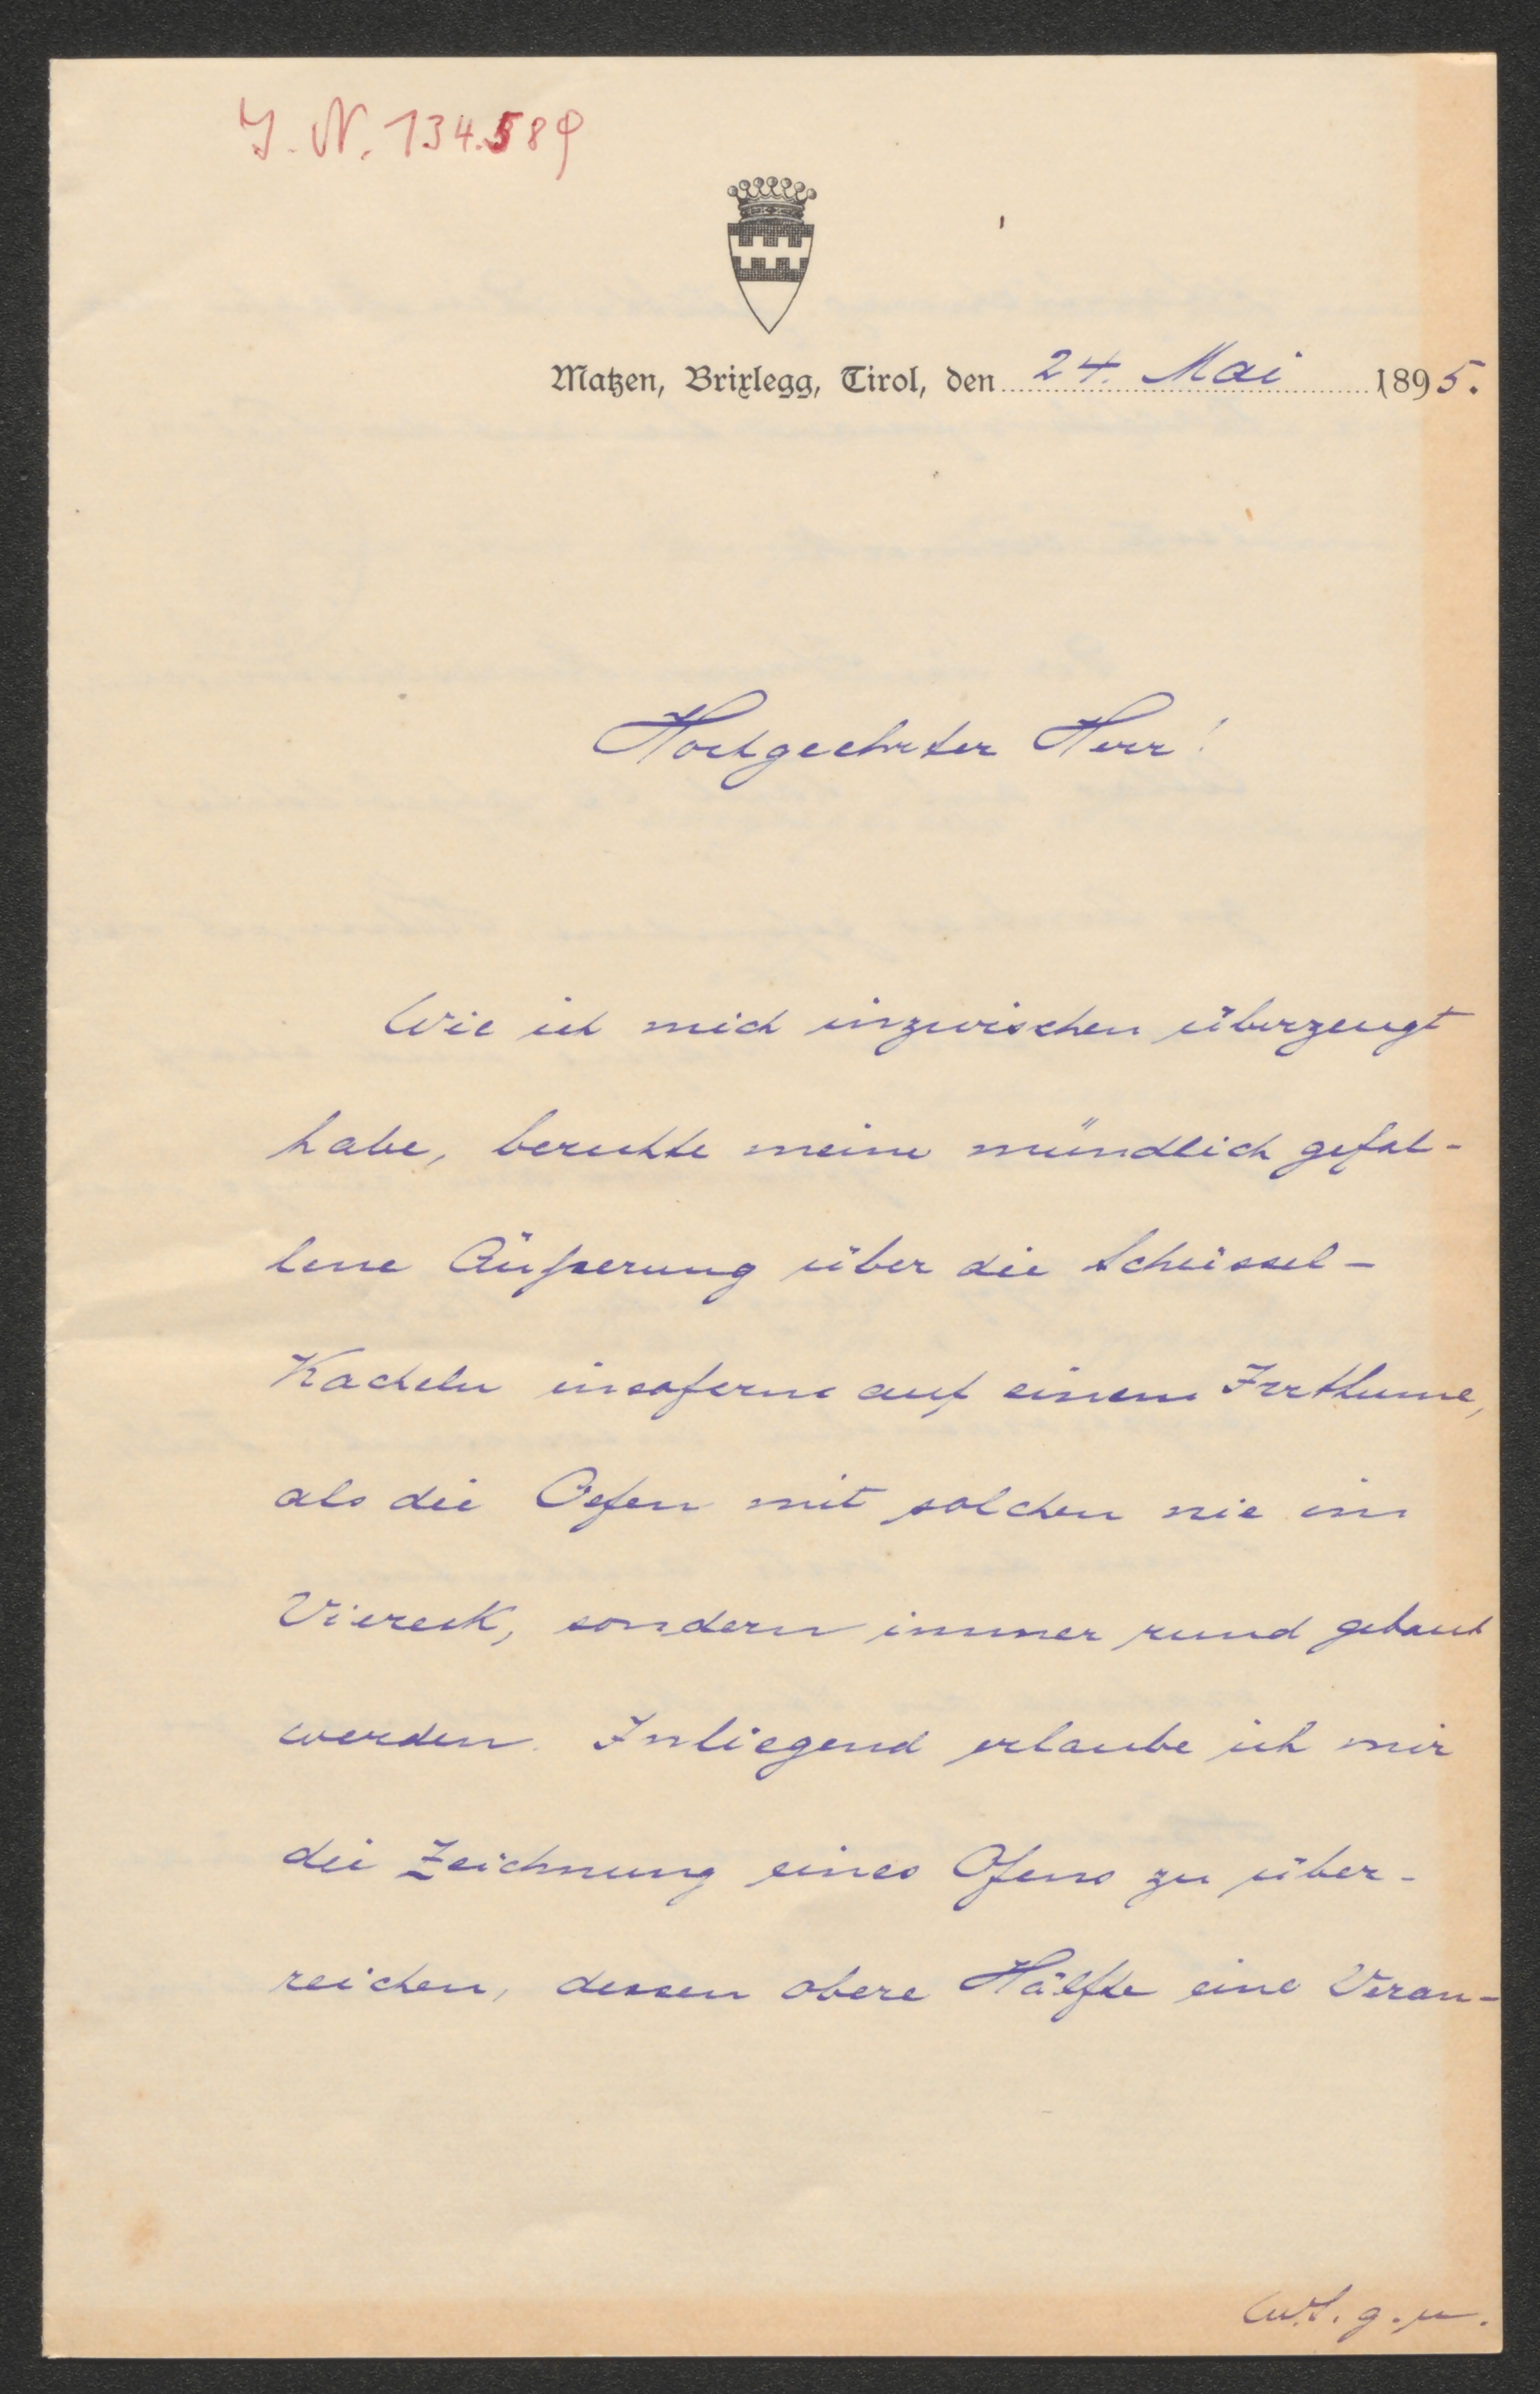 J. N. 134.589
Matzen, Brixlegg, Tirol, den 24. Mai 1895.
Hochgeehrter Herr!
Wie ich mich inzwischen überzeugt
habe, beruhte meine mündlich gefal-
lene Äußerung über die Schüssel-
Kacheln insoferne auf einem Irrthume,
als die Oefen mit solchen nie im
Viereck, sondern immer rund gebaut
werden. Inliegend erlaube ich mir
die Zeichnung eines Ofens zu über-
reichen, dessen obere Hälfte eine Veran-